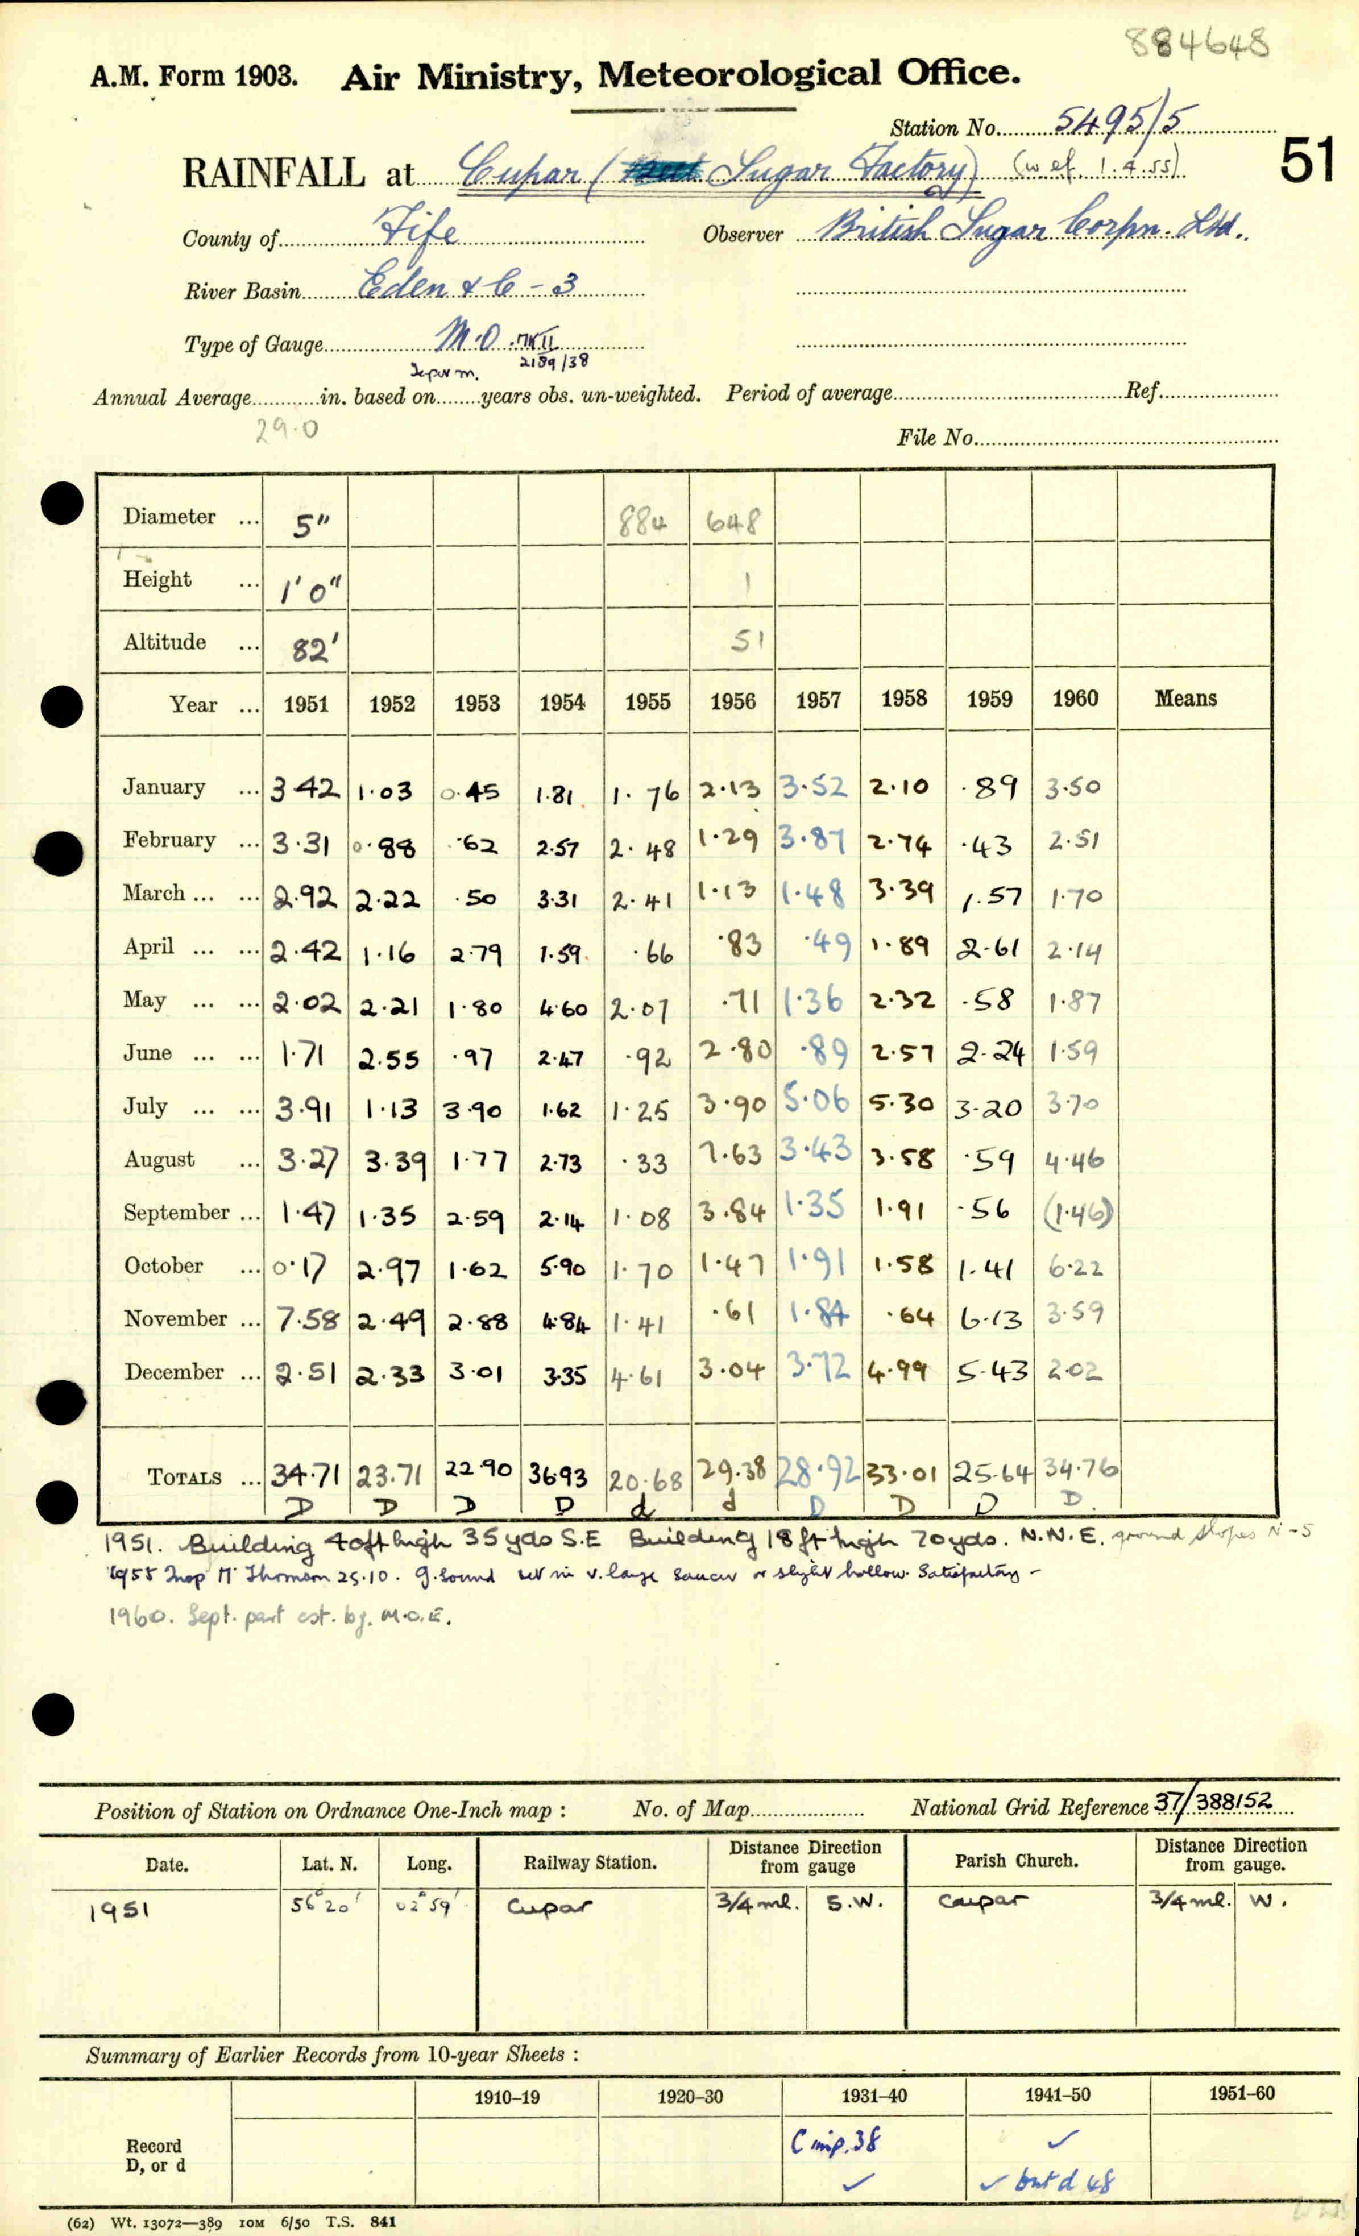 884648
A.M. Form 1903. Air Ministry, Meteorological Office.
Station No. 5495/5
RAINFALL at Cupar ( Sugar Factory) (w.e.f. 1.4.55) 51
County of Fife Observer British Sugar Corpn. Ltd.
River Basin Eden & C - 3
Type of Gauge M.O. MK II
2189/38
Annual Average in. based on years obs. un-weighted. Period of average Ref.
29.0
File No.
Diameter ... 5" 884 648
Height ... 1'0" 1
Altitude ... 82' 51
Year ... 1951 1952 1953 1954 1955 1956 1957 1958 1959 1960 Means
January ... 3.42 1.03 0.45 1.81 1.76 2.13 3.52 2.10 .89 3.50
February ... 3.31 0.88 .62 2.57 2.48 1.29 3.87 2.74 .43 2.51
March ... ... 2.92 2.22 .50 3.31 2.41 1.13 1.48 3.39 1.57 1.70
April ... ... 2.42 1.16 2.79 1.59 .66 .83 .49 1.89 2.61 2.14
May ... ... 2.02 2.21 1.80 4.60 2.07 .71 1.36 2.32 .58 1.87
June ... ... 1.71 2.55 .97 2.47 .92 2.80 .89 2.57 2.24 1.59
July ... ... 3.91 1.13 3.90 1.62 1.25 3.90 5.06 5.30 3.20 3.70
August ... 3.27 3.39 1.77 2.73 .33 7.63 3.43 3.58 .59 4.46
September ... 1.47 1.35 2.59 2.14 1.08 3.84 1.35 1.91 .56 (1.46)
October ... 0.17 2.97 1.62 5.90 1.70 1.47 1.91 1.58 1.41 6.22
November ... 7.58 2.49 2.88 4.84 1.41 .61 1.84 .64 6.13 3.59
December ... 2.51 2.33 3.01 3.35 4.61 3.04 3.72 4.99 5.43 2.02
TOTALS ... 34.71 23.71 22.90 36.93 20.68 29.38 28.92 33.01 25.64 34.76
D D D D d d D D D D.
1951. Building 40ft high 35 yds S.E Building 18 ft high 70 yds. N.N.E. ground slopes N-S
1955 Insp Thomson 25.10. ground set in v. large saucer or slight hollow. Satisfactory -
1960. Sept. part est. by. M.O.E.
Position of Station on Ordnance One-Inch map : No. of Map National Grid Reference 37/388152
Date. Lat. N. Long. Railway Station. Distance from gauge Direction Parish Church. Distance from gauge. Direction
1951 56° 20' 02° 59' Cupar 3/4 ml. S.W. Cupar 3/4 ml. W.
Summary of Earlier Records from 10-year Sheets :
1910–19 1920–30 1931–40 1941–50 1951–60
Record D, or d C inp. 38 ✓
✓ ✓ but d 48
(62) Wt. 13072—389 10M 6/50 T.S. 841